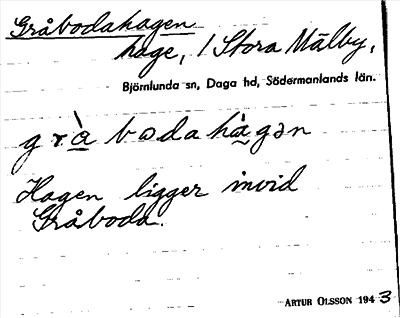 Gråbodahagen
hage, / Stora Mälby,
Björnlunda sn, Daga hd, Södermanlands län.
grà bodahàgən
Hagen ligger invid
Gråboda.
ARTUR OLSSON 1943